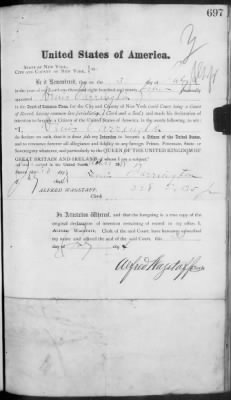 697
United States of America.
STATE OF NEW YORK,
CITY AND COUNTY OF NEW YORK,
Be it Remembered, that on the 3 day of
in the year of our Lord one thousand eight hundred and ninety personally
appeared Denis Carrington
in the Court of Common Pleas, for the City and County of New-York (said Court being a Court
of Record, having common law jurisdiction, a Clerk and a Seal), and made his declaration
of intention to become a Citizen of the United States, in the words following, to wit:
"I, Denis Carrington
do declare on oath, that it is bona fide my intention to become a Citizen of the United States,
and to renounce forever all allegiance and fidelity to any foreign Prince, Potentate, State or
Sovereignty whatever, and particularly to the QUEEN OF THE UNITED KINGDOM OF
GREAT BRITAIN AND IRELAND, of whom I am a subject."
in the United States
Denis Carrington
ALFRED WAGSTAFF,
Clerk
In Attestation Whereof, and that the foregoing is a true copy of the
original declaration of intention remaining of record in my office, I,
ALFRED WAGSTAFF, Clerk of the said Court, have hereunto subscribed
my name and affixed the seal of the said Court, this
day of 189
Alfred Wagstaff